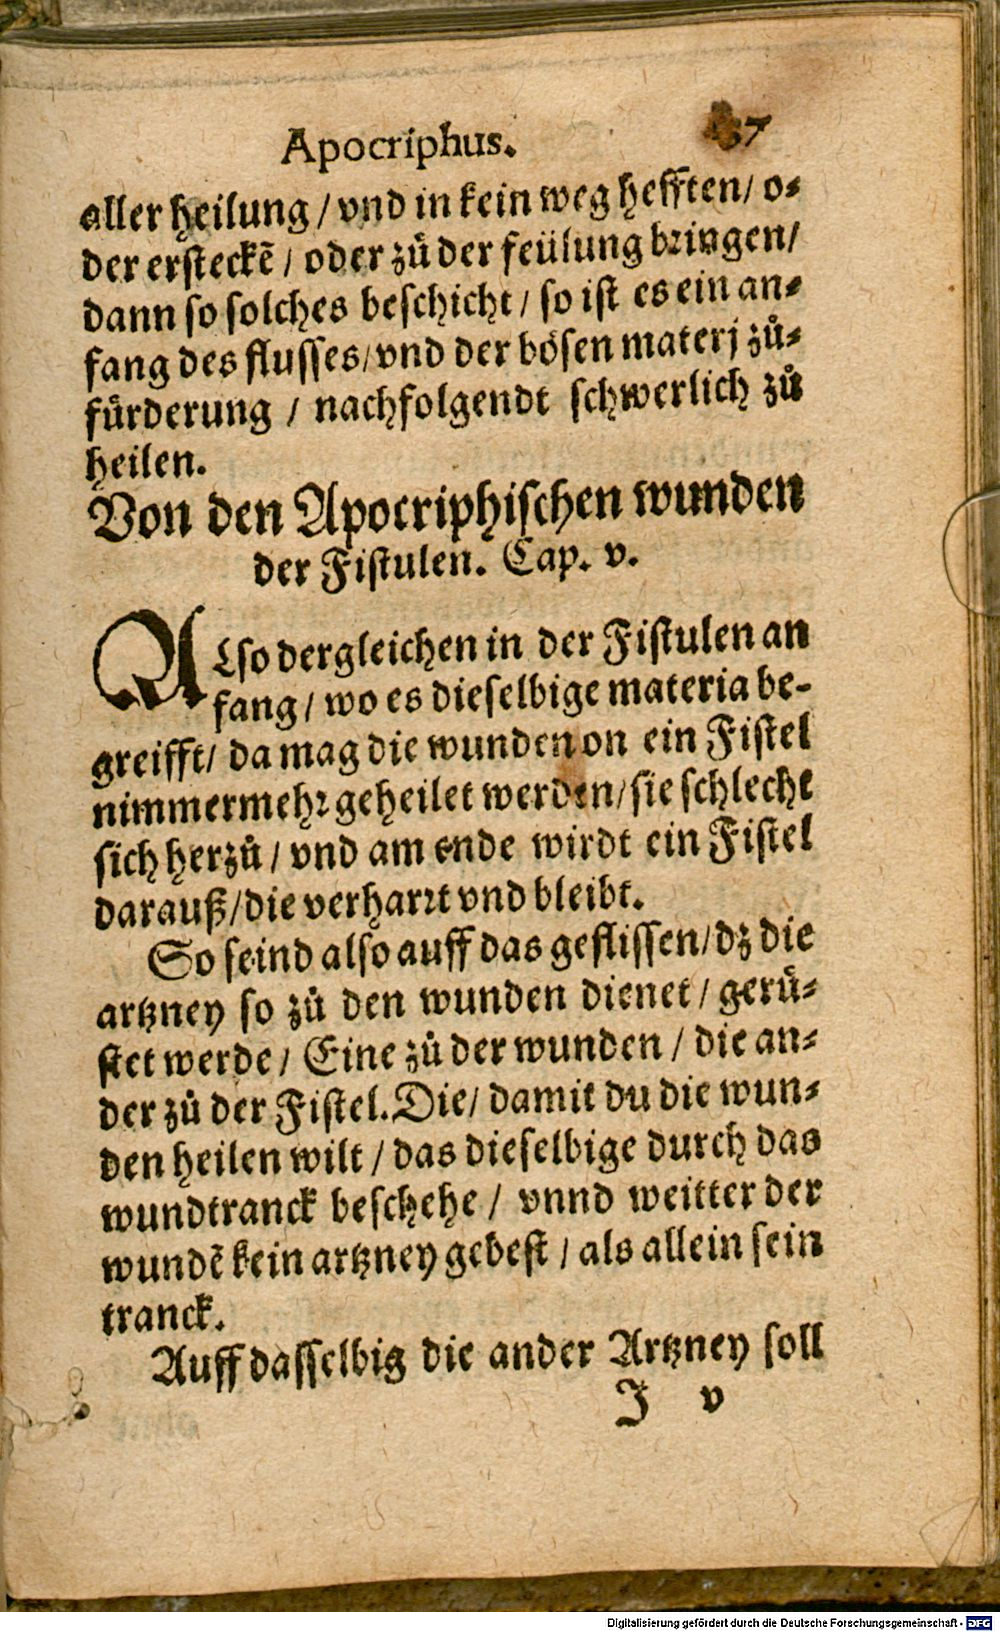 Apocriphus. 137
aller heilung / vnd in kein weg hefften / o⸗
der ersteckẽ / oder zů der feülung bringen /
dann so solches beschicht / so ist es ein an⸗
fang des flusses / vnd der bösen materj zů⸗
fürderung / nachfolgendt schwerlich zů
heilen.
Von den Apocriphischen wunden
der Fistulen. Cap. v.
ALso dergleichen in der Fistulen an
fang / wo es dieselbige materia be-
greifft / da mag die wunden on ein Fistel
nimmermehr geheilet werden / sie schlecht
sich herzů / vnd am ende wirdt ein Fistel
darauß / die verharrt vnd bleibt.
So seind also auff das geflissen / dz die
artzney so zů den wunden dienet / gerů⸗
stet werde / Eine zů der wunden / die an⸗
der zů der Fistel. Die / damit du die wun⸗
den heilen wilt / das dieselbige durch das
wundtranck beschehe / vnnd weitter der
wundẽ kein artzney gebest / als allein sein
tranck.
Auff dasselbig die ander Artzney soll
J v
Digitalisierung gefördert durch die Deutsche Forschungsgemeinschaft - DFG